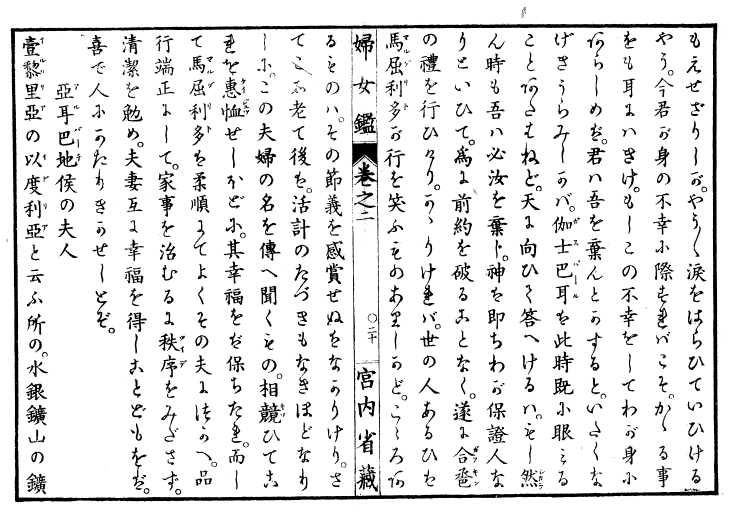 もえせざりしが。やう〳〵涙をはらひていひける
やう。今君が身の不幸に際すればこそ。かゝる事
をも耳にハきけ。もしこの不幸をしてわが身に
あらしめバ。君ハ吾を棄んとかすると。いたくな
げきうらみしかバ。伽士巴耳を此時既に眼みる
ことあたはねど。天に向ひて答へけるハ。もし然ら
ん時も吾ハ必汝を棄じ。神を即ちわが保證人な
りといひて。為に前約を破ることなく。遂に合巹
の禮を行ひけり。かゝりければ。世の人あるひを
馬屈利多が行を笑ふものありしかど。こゝろあ
婦女鑑 巻之二 〇二十 宮内省藏
るものハ。その節義を感賞せぬをなかりけり。さ
てこれ老て後を。活計のたづきもなきほどなり
しに。この夫婦の名を傳へ聞くもの。相競ひてこ
れを惠恤せしかどに。其幸福をバ保ちたれ。而し
て馬屈利多を柔順にてよくその夫につかへ。品
行端正にして。家事を治むるに秩序をみださず。
清潔を勉め。夫妻互に幸福を得しことどもをバ。
喜で人にかたりきかせしとぞ。
亞耳巴地侯の夫人
壹黎里亞の以度利亞と云ふ所の。水銀鑛山の鑛